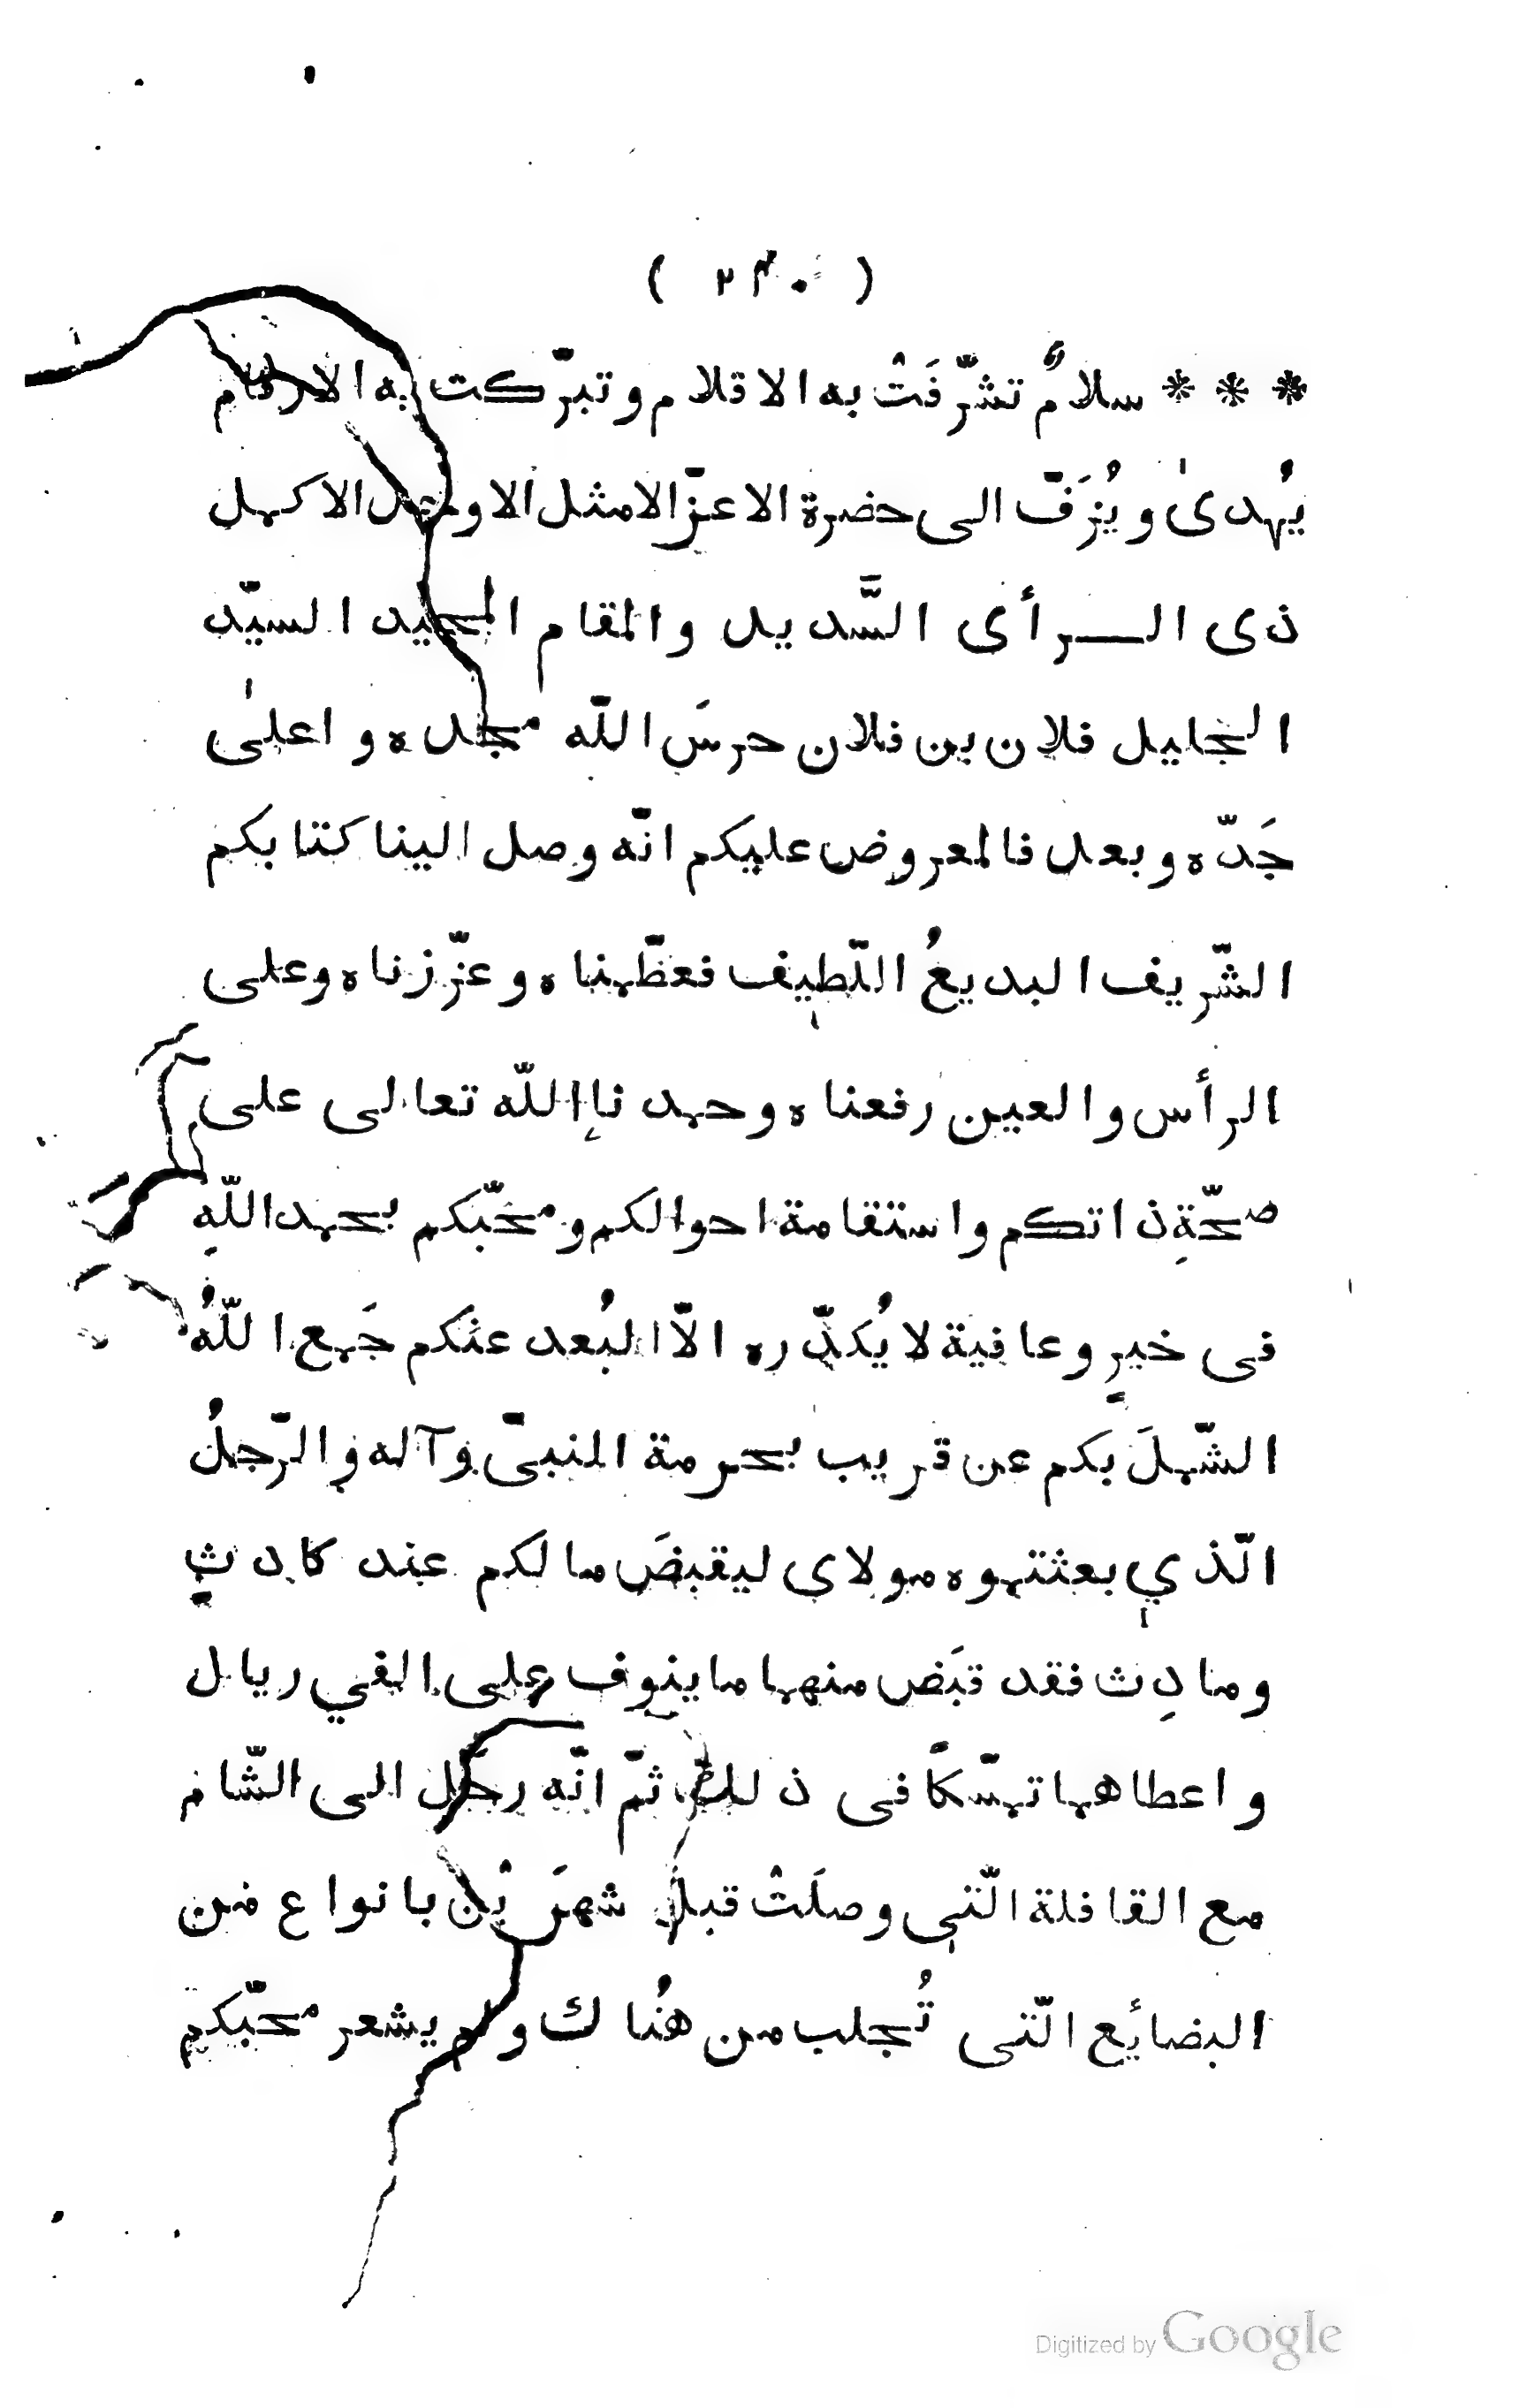 ( ٢٣٠ )
* * * سلامٌ تشرّفَتْ به الاقلام وتبرّكت به الارقام
يُهدىٰ ويُزَفّ الى حضرة الاعزّ الامثل الاوحد الاكمل
ذى الـرأى السَّديد والمقام المجيد السيّد
الجليل فلان بن فلان حرسَ اللّه مجده واعلىٰ
جَدّه وبعد فالمعروض عليكم انّه وصل الينا كتابكم
الشّريف البديعُ اللّطيف فعظّمناه وعزّزناه وعلى
الرأس والعين رفعناه وحمدنا اللّه تعالى على
صحّةِ ذاتكم واستقامة احوالكم ومحبّكم بحمد اللّهِ
فى خيرٍ وعافية لا يُكدّره الّا البُعد عنكم جَمع اللّهُ
الشّملَ بكم عن قريب بحرمة النبىّ وآله والرّجلُ
الّذي بعثتموه مولاى ليقبضَ مالكم عند كادثٍ
ومادِث فقد قبَض منهما ما ينوف على الفي ريال
واعطاهما تمسّكًا فى ذلك ثمّ انّه رحّل الى الشّام
مع القافلة الّتى وصلَتْ قبل شهرَيْن بانواع من
البضائع الّتى تُجلب من هُناك ولم يشعر محبّكم
Digitized by Google